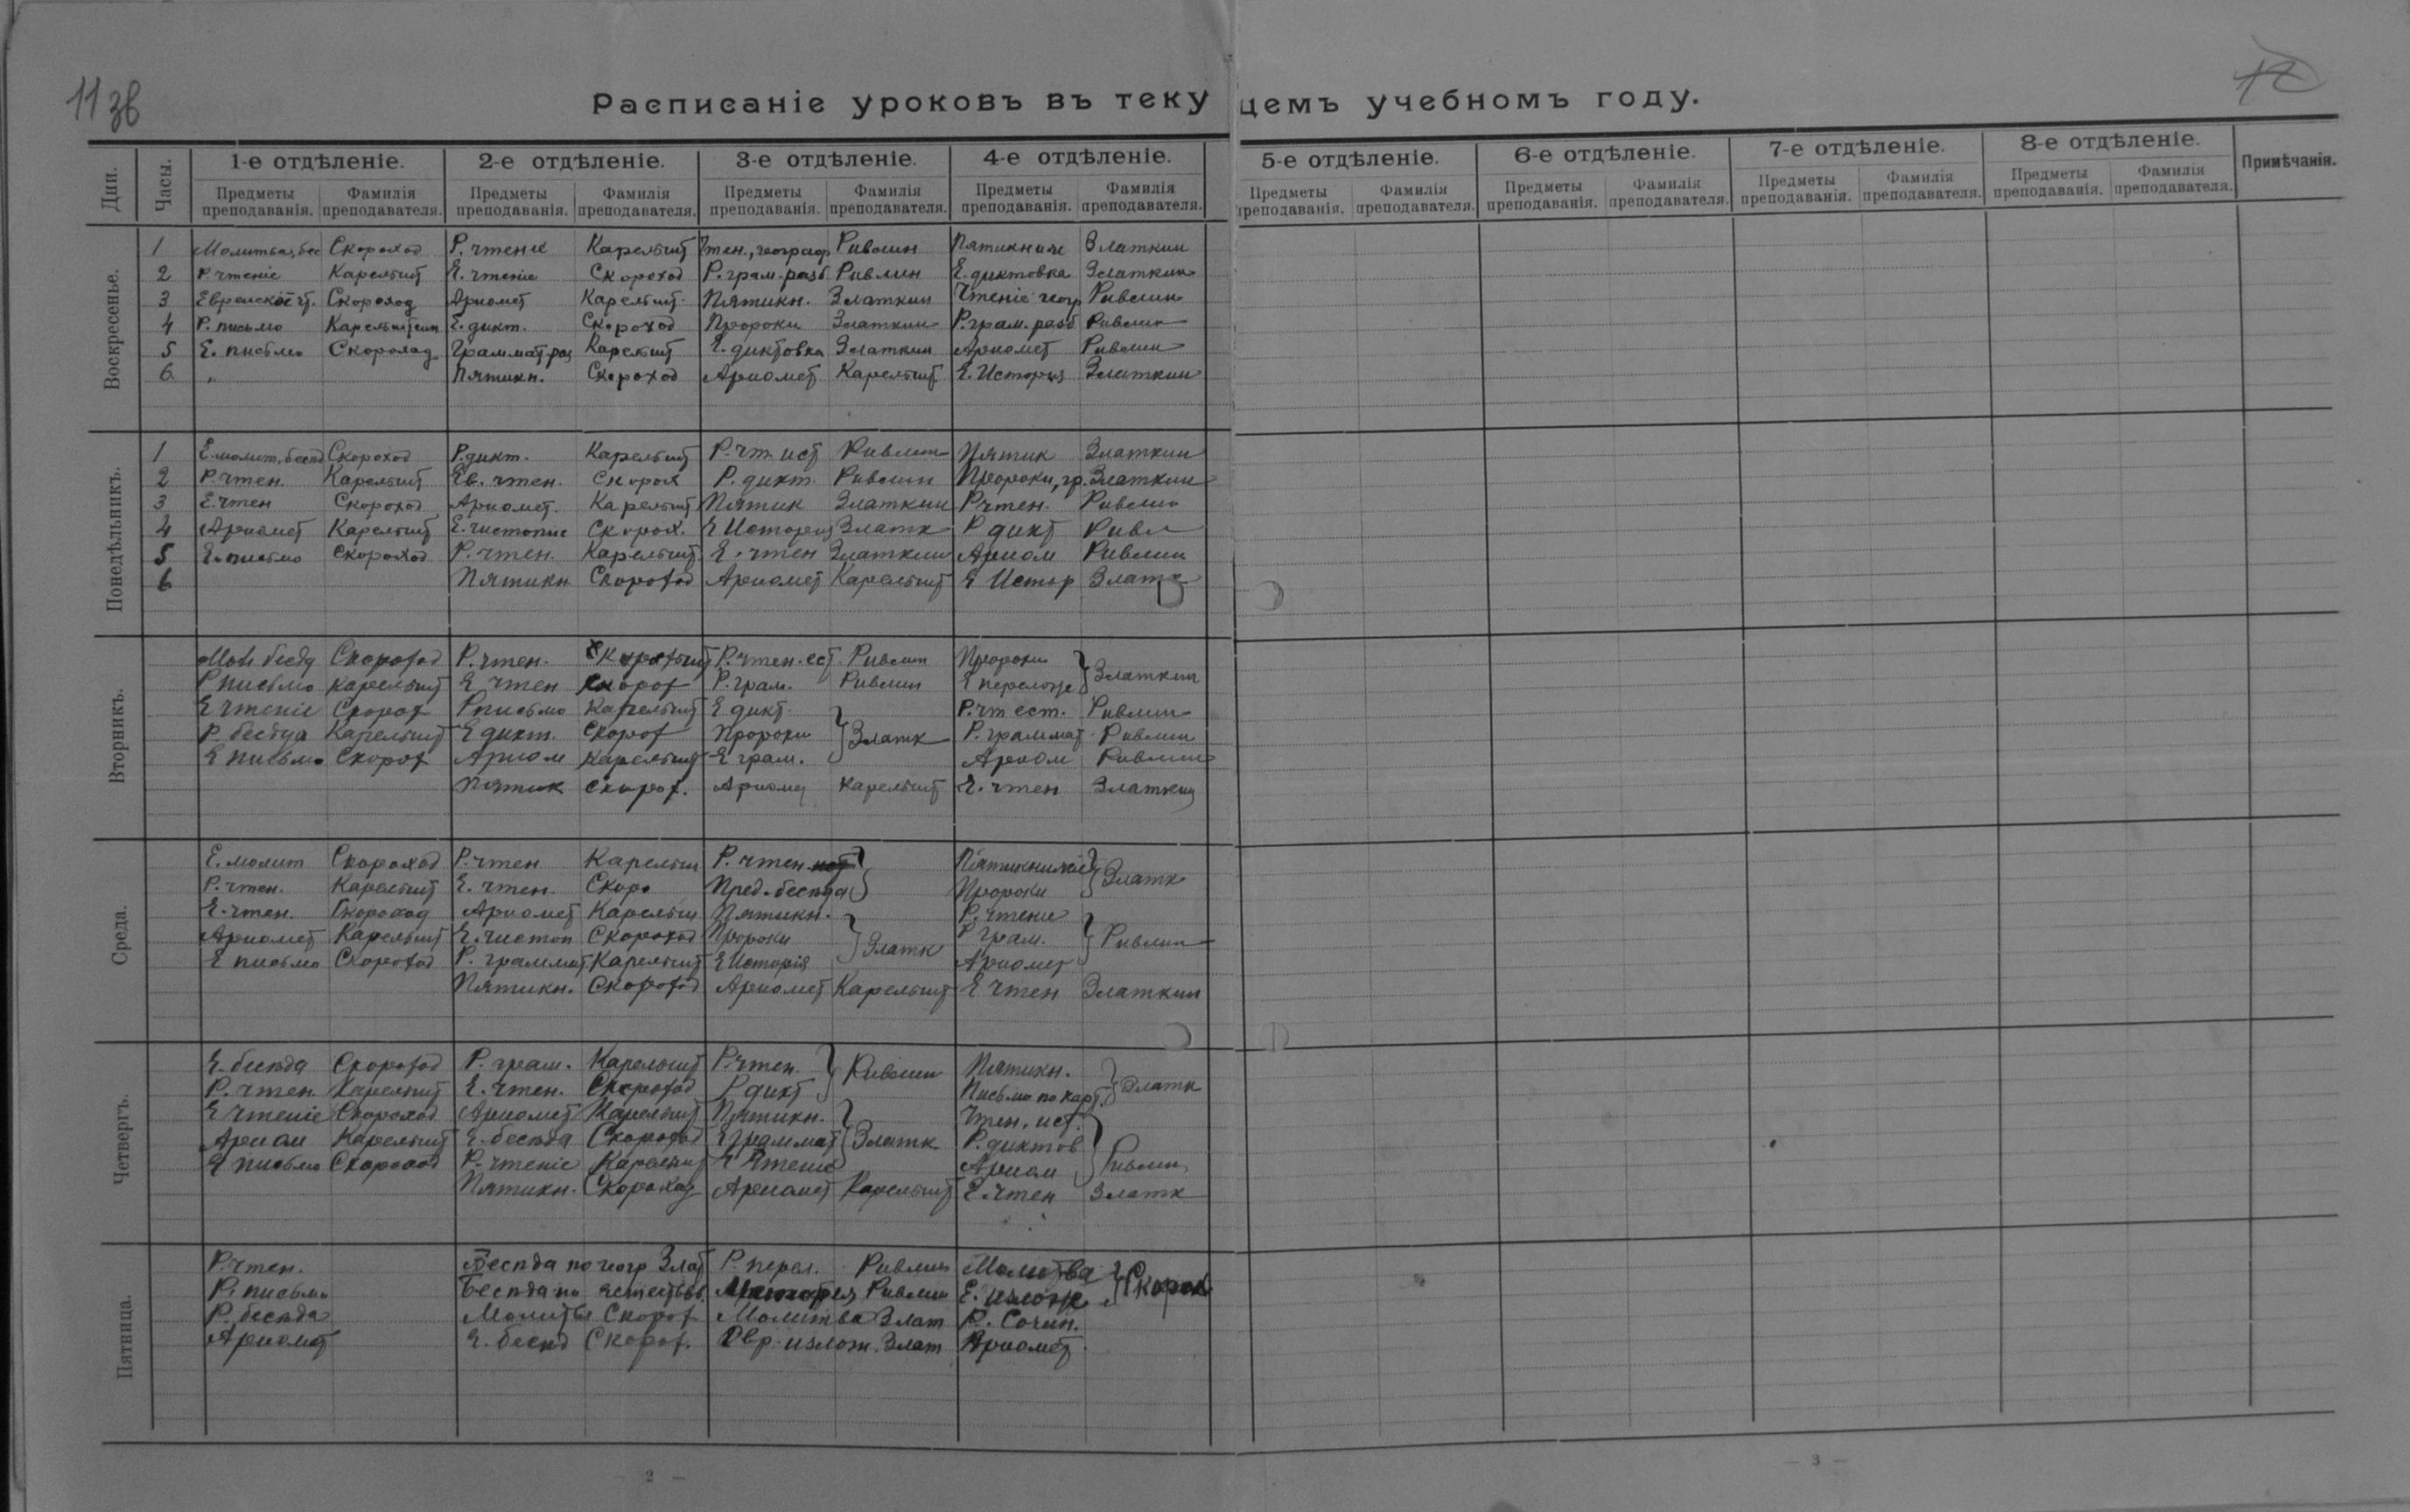 11 зв
Расписаніе уроковъ въ теку щемъ учебномъ году.
Дни. Часы. 1-е отдѣленіе. 2-е отдѣленіе. 3-е отдѣленіе. 4-е отдѣленіе. 5-е отдѣленіе. 6-е отдѣленіе. 7-е отдѣленіе. 8-е отдѣленіе. Примѣчанія.
Предметы преподаванія. Фамилія преподавателя. Предметы преподаванія. Фамилія преподавателя. Предметы преподаванія. Фамилія преподавателя. Предметы преподаванія. Фамилія преподавателя. Предметы преподаванія. Фамилія преподавателя. Предметы преподаванія. Фамилія преподавателя. Предметы преподаванія. Фамилія преподавателя. Предметы преподаванія. Фамилія преподавателя.
Воскресенье.
1 Молитва, бес Скороход Р. чтение Карельшт Чтен., географ Ривлин Пятикнижие Златкин
2 Р. чтеніе Карельшт Е. чтеніе Скороход Р. грам. разб Ривлин Е. диктовка Златкин
3 Еврейское чт. Скороход Ариѳмет Карельшт Пятикн. Златкин Чтеніе геогр Ривлин
4 Р. письмо Карельштейн Е. дикт. Скороход Пророки Златкин Р. грам. разб Ривлин
5 Е. письмо Скороход Граммат. раз Карельшт Е. диктовка Златкин Ариѳмет Ривлин
6 " Пятикн. Скороход Ариѳмет Карельшт Е. История Златкин
Понедѣльникъ.
1 Е. молит. бесѣд Скороход Р. дикт. Карельшт Р. чт. ист Ривлин Пятик Златкин
2 Р. чтен. Карельшт Ев. чтен. Скорох Р. дикт. Ривлин Пророки, гр. Златкин
3 Е. чтен Скороход Ариѳмет. Карельшт Пятик Златкин Р чтен. Ривлин
4 Ариѳмет Карельшт Е. чистопис Скорох. Е История Златк Р дикт Ривл
5 Е. письмо Скороход Р. чтен. Карельшт Е. чтен Златкин Ариѳм Ривлин
6 Пятикн Скороход Ариѳмет Карельшт Е Истор Златк
Вторникъ.
Мол бесѣд Скороход Р. чтен. Карельшт Р. чтен. ест Ривлин Пророки } Златкин
Р письмо Карельшт Е чтен Скорох Р. грам. Ривлин Е перелож
Е чтеніе Скорох Р письмо Карельшт Е дикт. } Златк Р. чт ест. Ривлин
Р. бесѣда Карельшт Е дикт. Скорох Пророки Р. граммат Ривлин
Е письмо Скорох Ариѳм Карельшт Е грам. Ариѳм Ривлин
Пятик Скорох. Ариѳмет Карельшт Е. чтен Златкин
Среда.
Е. молит Скороход Р. чтен Карельш Р. чтен. } Пятикнижие } Златк
Р. чтен. Карельшт Е. чтен. Скоро Пред. бесѣда Пророки
Е. чтен. Скороход Ариѳмет Карельш Пятикн. } Златк Р. чтение } Ривлин
Ариѳмет Карельшт Е. чистоп Скороход Пророки Р грам.
Е письмо Скороход Р. граммат Карельшт Е Исторія Ариѳмет
Пятикн. Скороход Ариѳмет Карельшт Е чтен Златкин
Четвергъ.
Е. бесѣда Скороход Р. грам. Карельшт Р. чтен. } Ривлин Пятикн. } Златк
Р. чтен. Карельшт Е. чтен. Скороход Р дикт Письмо по карт.
Е чтеніе Скороход Ариѳмет Карельшт Пятикн. } Златк Чтен. ист. } Ривлин
Ариѳм Карельшт Е. бесѣда Скороход Е граммат Р. диктов
Е письмо Скороход Р. чтеніе Карельшт Е Чтение Ариѳм
Пятикн. Скороход Ариѳмет Карельшт Е. чтен Златк
Пятница.
Р. чтен. Бесѣда по геогр Злат Р. перел. Ривлин Молитва } Скорох
Р. письмо Бесѣда по естеств. История Ривлин Е. излож
Р. бесѣда Молитва Скорох Молитва Злат Р. Сочин.
Ариѳмет Е. бесѣд Скорох. Евр. излож. Злат Ариѳмет.
– 2 –
– 3 –